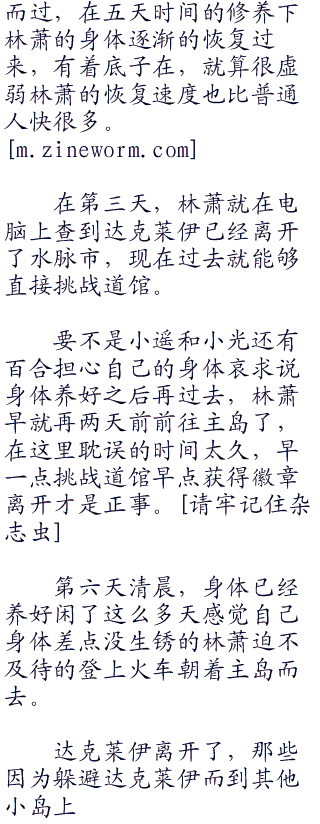 而过，在五天时间的修养下
林萧的身体逐渐的恢复过
来，有着底子在，就算很虚
弱林萧的恢复速度也比普通
人快很多。
[m.zineworm.com]
在第三天，林萧就在电
脑上查到达克莱伊已经离开
了水脉市，现在过去就能够
直接挑战道馆。
要不是小遥和小光还有
百合担心自己的身体哀求说
身体养好之后再过去，林萧
早就再两天前前往主岛了，
在这里耽误的时间太久，早
一点挑战道馆早点获得徽章
离开才是正事。[请牢记住杂
志虫]
第六天清晨，身体已经
养好闲了这么多天感觉自己
身体差点没生锈的林萧迫不
及待的登上火车朝着主岛而
去。
达克莱伊离开了，那些
因为躲避达克莱伊而到其他
小岛上